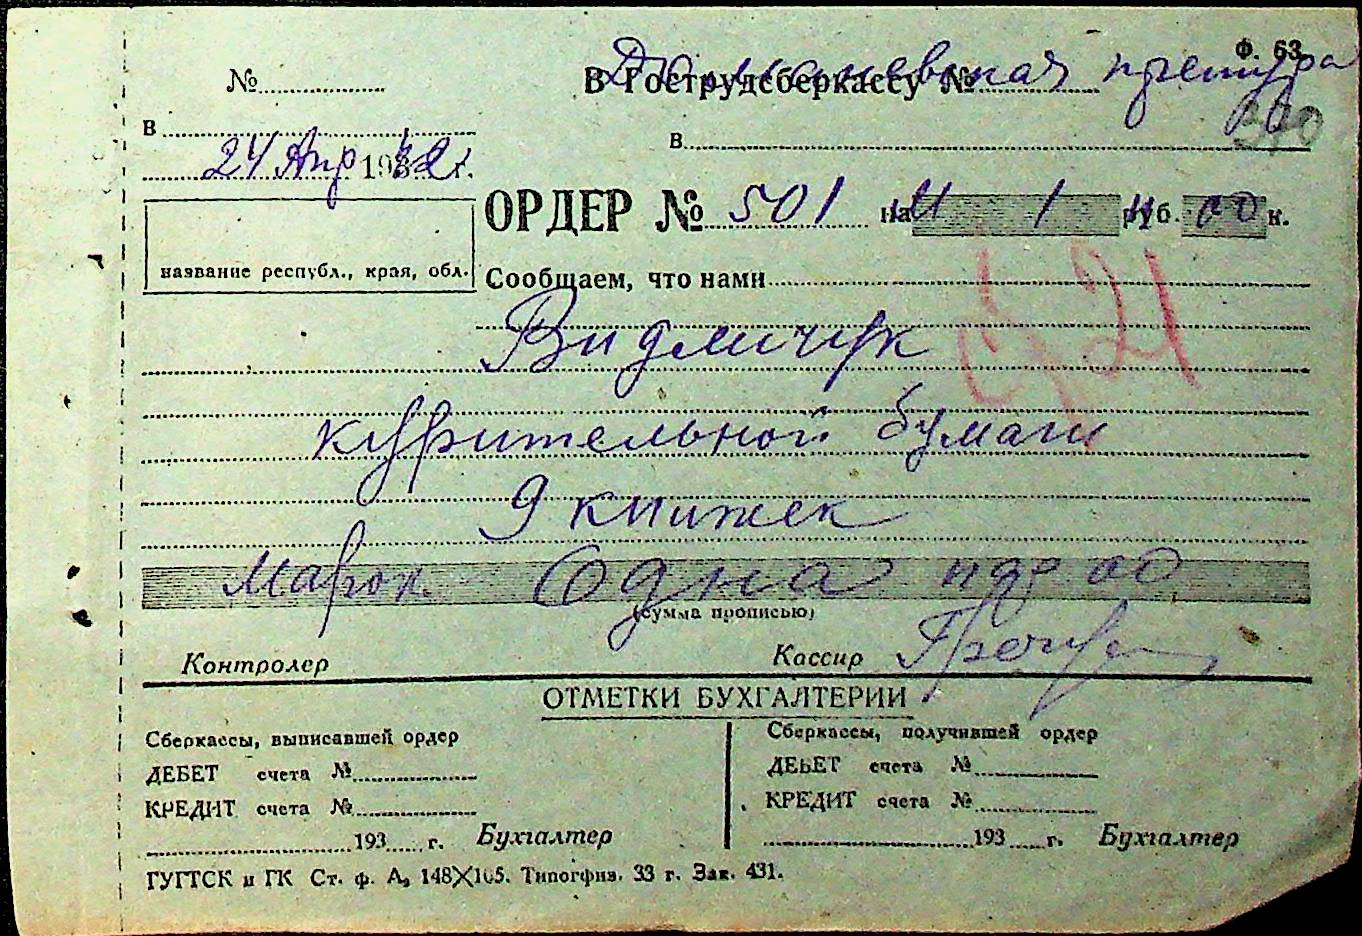 Ф. 63
№
В Гострудсберкассу №
в
в
24 Апр 1942 г.
ОРДЕР № 501 на 1 руб. 00 к.
название республ., края, обл.
Сообщаем, что нами
521
Видмичук
курительной бумаги
9 книжек
Марок. Одна 00
(сумма прописью)
Контролер
Кассир
ОТМЕТКИ БУХГАЛТЕРИИ
Сберкассы, выписавшей ордер
ДЕБЕТ счета №
КРЕДИТ счета №
193 г. Бухгалтер
Сберкассы, получившей ордер
ДЕБЕТ счета №
КРЕДИТ счета №
193 г. Бухгалтер
ГУГТСК и ГК Ст. ф. А, 148X105. 33 г. Зак. 431.